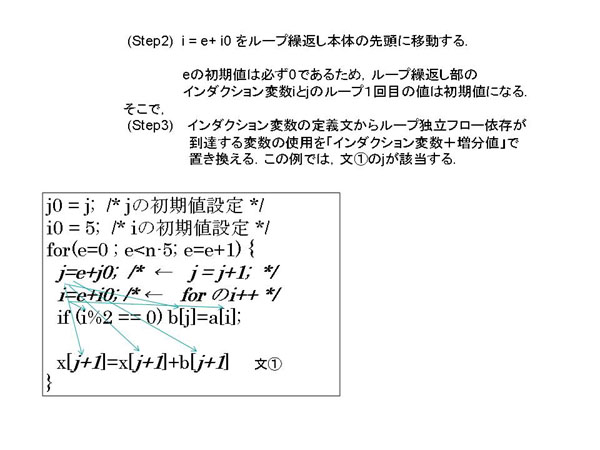 (Step2) i = e+ i0 をループ繰返し本体の先頭に移動する.
eの初期値は必ず0であるため，ループ繰返し部の
インダクション変数iとjのループ１回目の値は初期値になる.
そこで，
(Step3) インダクション変数の定義文からループ独立フロー依存が
到達する変数の使用を「インダクション変数＋増分値」で
置き換える．この例では，文①のjが該当する.
j0 = j; /* jの初期値設定 */
i0 = 5; /* iの初期値設定 */
for(e=0 ; e<n-5; e=e+1) {
j=e+j0; /* ← j = j+1; */
i=e+i0; /* ← for のi++ */
if (i%2 == 0) b[j]=a[i];
x[j+1]=x[j+1]+b[j+1] 文①
}